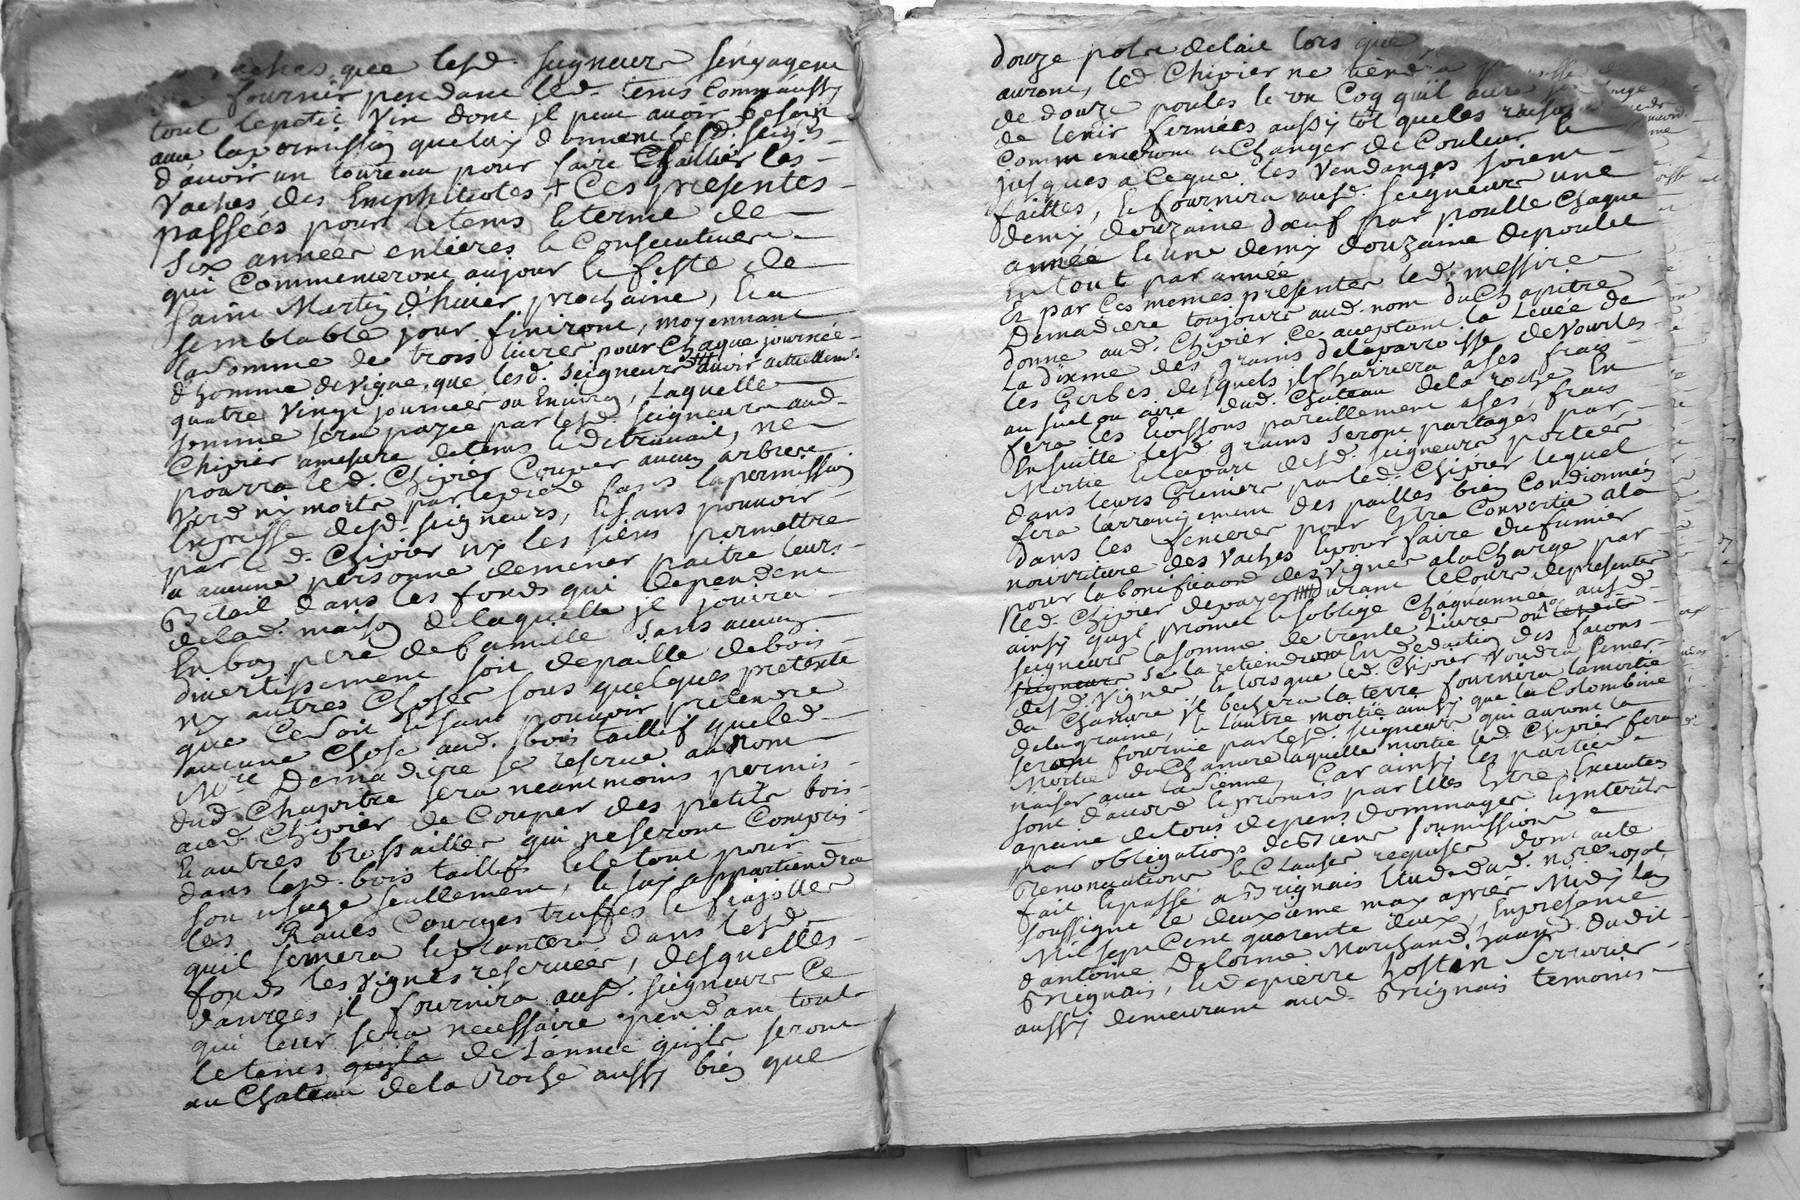 vaches que lesd. seigneurs s'engagent
fournir pendant led. tems comm'aussy
tout lepetit vin dont jl peut avoir besoin
avec lapermission queluy donnent lesd. seigrs
d'avoir un toureau pour faire
vaches des Emphiteotes, + Ces presentes
passées pour letems & terme de
six années entieres & Consecutives
qui Commenceront aujour & feste de
saint Martin d'hiver prochaine, & a
semblable jour finiront, moyennant
lasomme de trois livres pour chaque journée
d'homme devigne que lesd. seigneurs avoir actuellemt
quatre vingt journées ou Environ, Laquelle
somme sera payée par lesd. seigneurs aud.
Chipier amesure detems & detravail, ne
pourra led. Chipier Couper aucun arbres
verd ny morts par lepied sans lapermission
Expresse desd. seigneurs, & sans pouvoir
par led. Chipier ny les siens permettre
a aucune personne demener paitre leurs
Bétail dans les fonds qui dependent
delad. maison delaquelle jl jouira
En bon pere defamille sans aucun
divertissement soit depaille debois
ny autres choses sous quelques pretexte
que Cesoit & sans pouvoir pretendre
aucune chose aud. bois taillif queled.
Mre Demadiere se reserve aunom
dud. Chapitre sera neantmoins permis
aud. Chipier de Couper des petits bois
& autres brossailles qui neseront Compris
dans lesd. bois taillifs & letout pour
son usage seullement, & luy appartiendra
les Raves Courges truffes & fiajolles
quil semera & plantera dans lesd.
fonds & vignes reservées, desquelles
danrées jl fournira ausd. seigneurs Ce
qui leur sera necessaire pendant tout
letems quils de L'année quils seront
au Chateau dela Roche aussy bien que
douze pots delait lors que
auront, led. Chipier ne tiendra
de douze poules & un Coq quil aura
de tenir fermées aussy tôt queles raisins
Commenceront a Changer de Couleur &
jusques a Ceque les Vendanges soient
faittes, & fournira ausd. seigneurs une
demy douzaine d'oeuf par poulle Chaque
année & une demy douzaine depoulet
En tout par année
Et par Ces memes presentes led. messire
Demadiere toujours aud. nom du Chapitre
donne aud. Chipier Ce acceptant la Levée de
La dixme des grains delaparroisse de Vourles
les Gerbes desquels jl Charriera ases frais
au suel ou aire dud. Chateau dela roche En
fera les Ecossons pareillement ases frais
Ensuitte lesd. grains seront partagés par
Moitié & lapart desd. seigneurs portée
dans leurs Greniers par led. Chipier lequel
fera l'arrangement des pailles bien Condionnées
dans les feneres pour Estre Convertie ala
nourriture des Vaches & pour faire dufumier
pour labonificaon des vignes ala Charge par
led. Chipier depayer durant leCours depresentes
ainsy quyl promet & soblige Chaqu'année ausd.
seigneurs lasomme de trente Livres
seigneurs se la retiendront En deduction des facons
desd. vignes & lorsque led. Chipier voudra semer
du Chanvre jl bechera la terre fournira lamoitié
delagraine, & L'autre moitié ainsy que la Colombine
seront fournie par lesd. seigneurs qui auront la
Moitié du Chanvre laquelle moitié led. Chipier fera
naiser avec lasienne, Car ainsy les parties
sont d'accord & promis par Elles Estre Executées
apaine detous depens dommages & Interets
par obligations deBiens soumissions &
Renonciations & Clauses requises dont acte
fait & passé a Brignais Etude dud. nore royal
soussigné le deuxieme may après Midy Lan
Mil sept Cent quarente deux, Enpresence
d'antoine Delorme Marchand hant dudit
Brignais, & depierre Hostin Serrurier
aussy demeurant aud. Brignais temoins